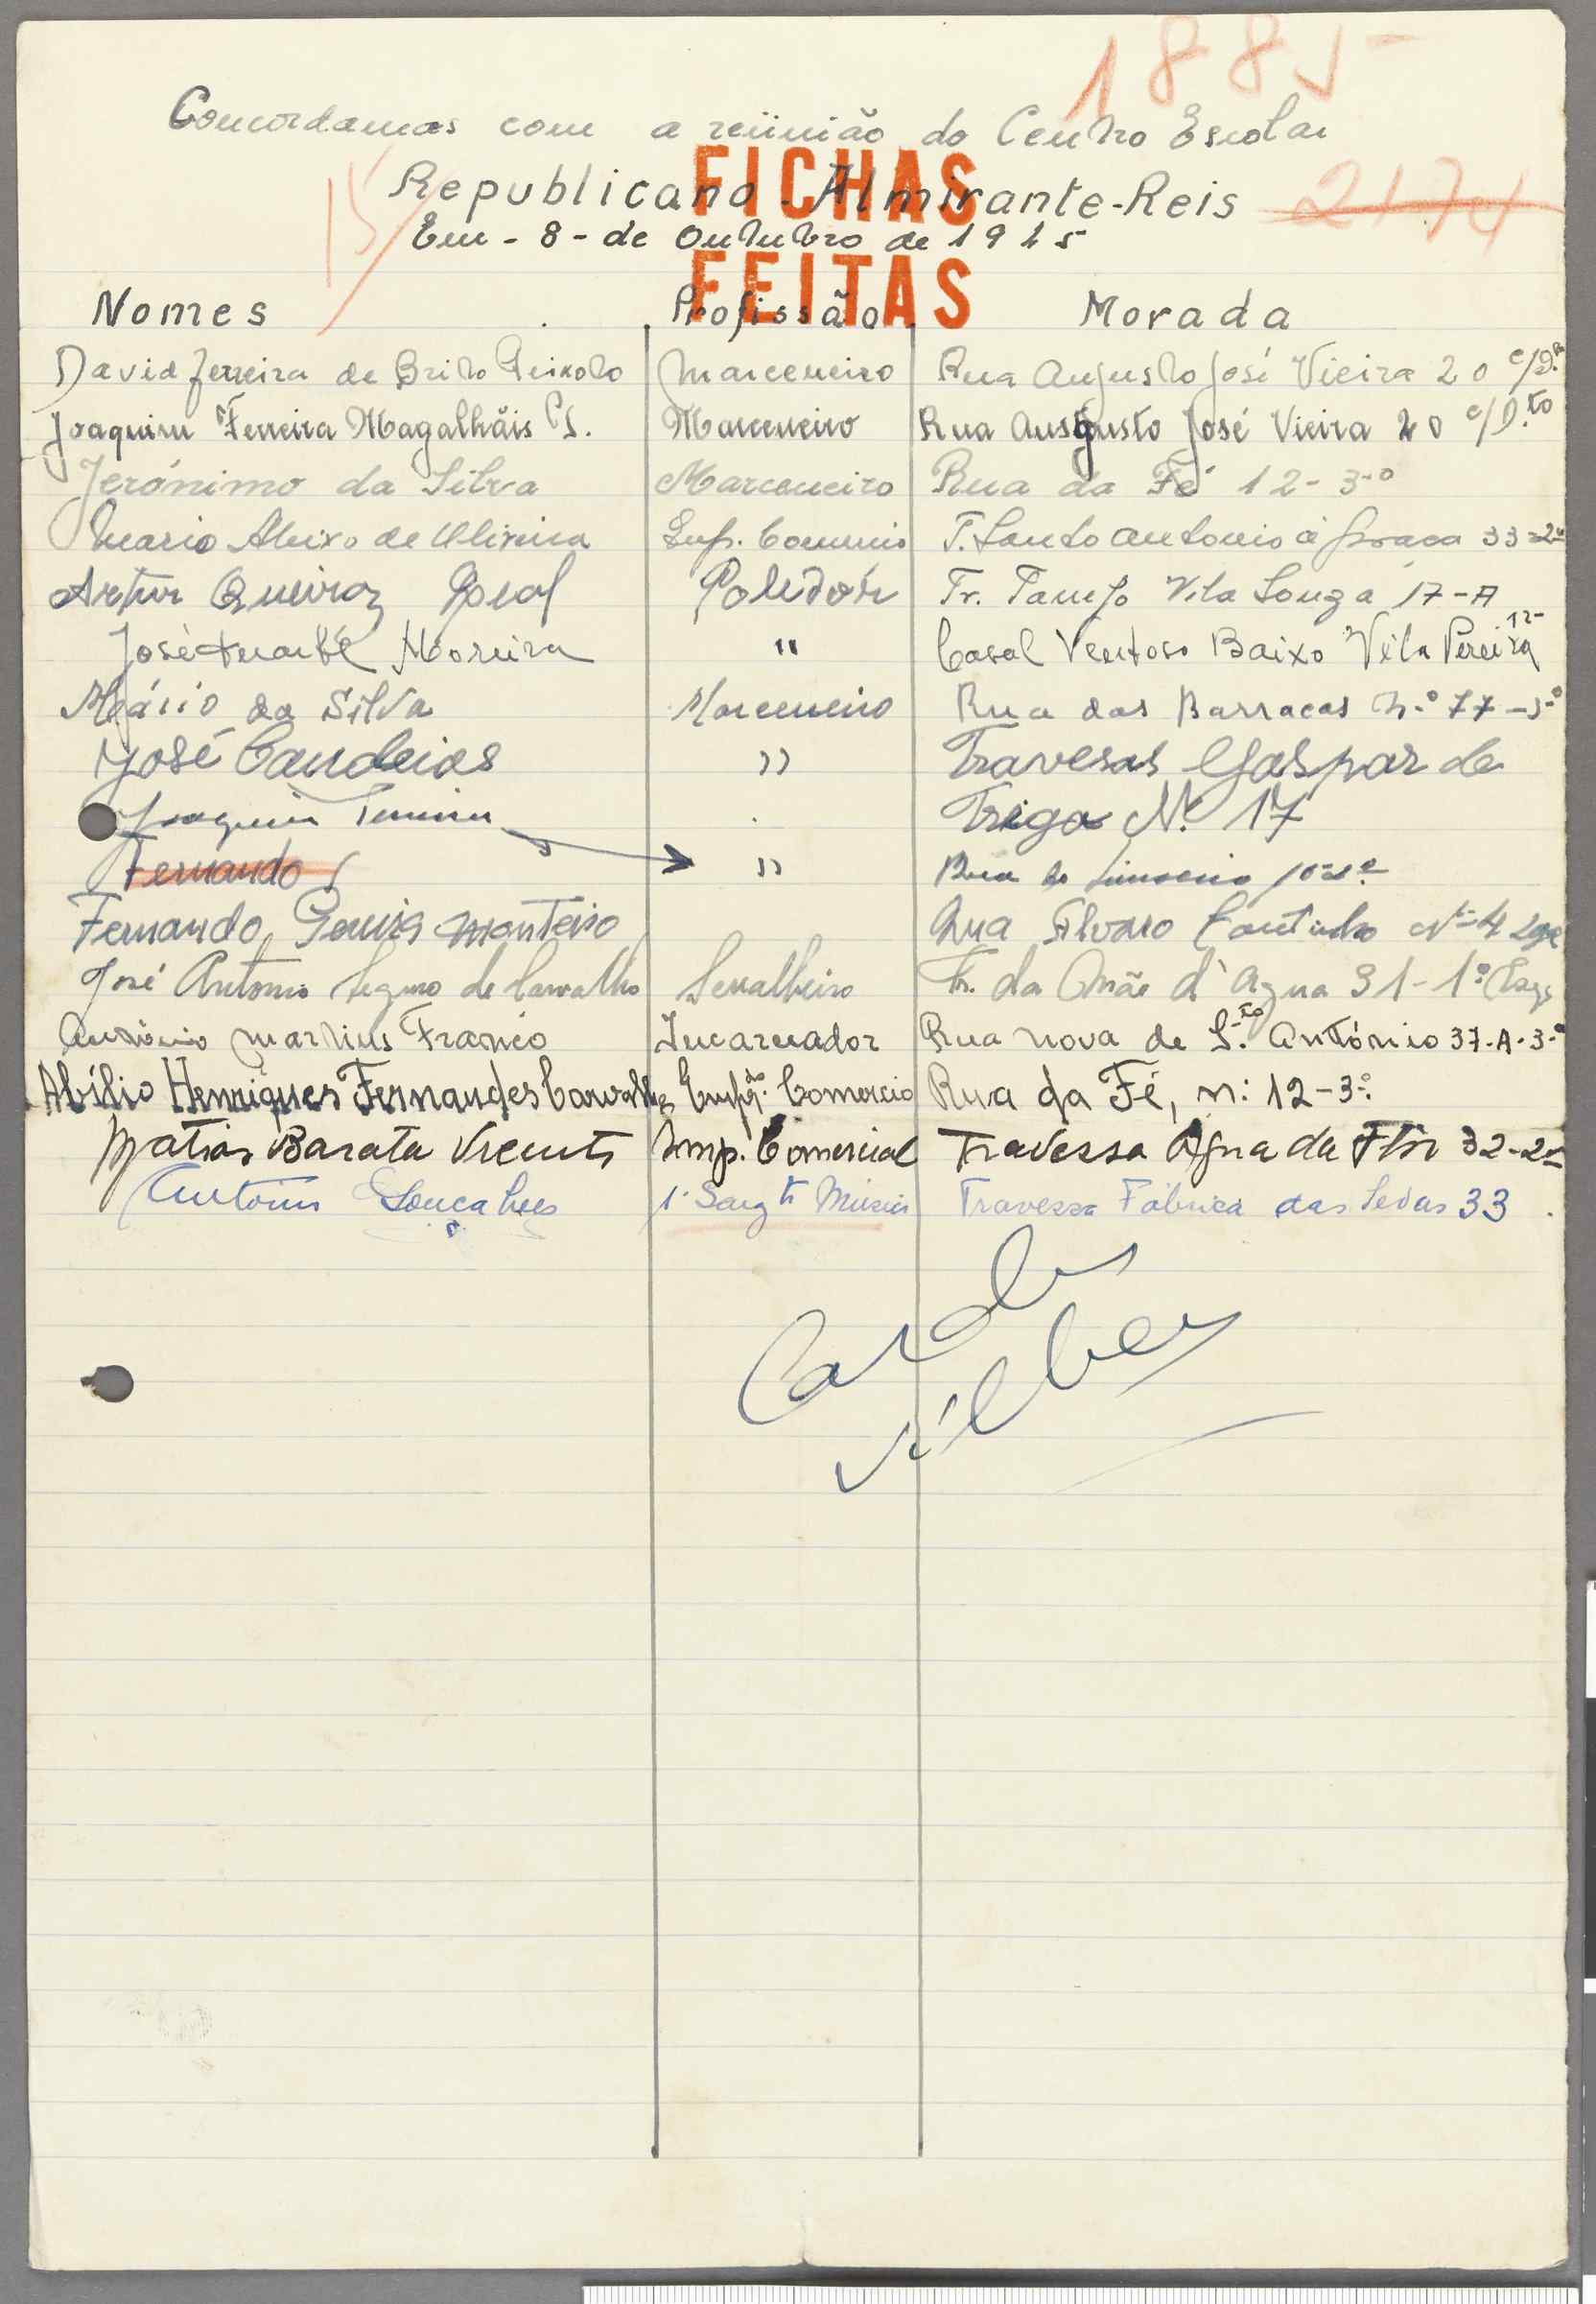 1885
Concordamos com a reünião do Centro Escolar
FICHAS
Republicano-Almirante-Reis 2174
15
Em-8-de Outubro de 1945
FEITAS
Nomes Profissão Morada
David Ferreira de Brito Peixoto Marceneiro Rua Augusto José Vieira 20 c/D.
Joaquim Ferreira Magalhãis P. Marceneiro Rua Augusto José Vieira 20 c/D.to
Jerónimo da Silva Marceneiro Rua da Fé 12-3º
Mario Aleixo de Oliveira Emp. Comercio T. Santo Antonio á Graça 33-2º
Artur Queiroz Leal Polidôr Tr. Vila Souza 17-A
José Duarte Moreira " Casal Ventoso Baixo Vila Pereira 12-
Mário da Silva Marceneiro Rua das Barracas N.º 77-3º
José Candeias " Travesas Gaspar de
Joaquim Trigo Nº 17
Fernando " Rua do Limoeiro
Fernando Monteiro Rua Alvaro Coutinho Nº 4
José Antonio Seguro de Carvalho Serralheiro Tr. da Mãe d'Agua 31-1º Esq.
António Martins Franco Incarnador Rua Nova de S.to António 37-A-3º
Abílio Henriques Fernandes Carvalho Empº. Comercio Rua da Fé, n: 12-3º
Matias Barata Vicente Emp. Comercial Travessa Agua da Flôr 32-2º
Antonio Gonçalves 1º Sargto Musico Travessa Fábrica das Sedas 33